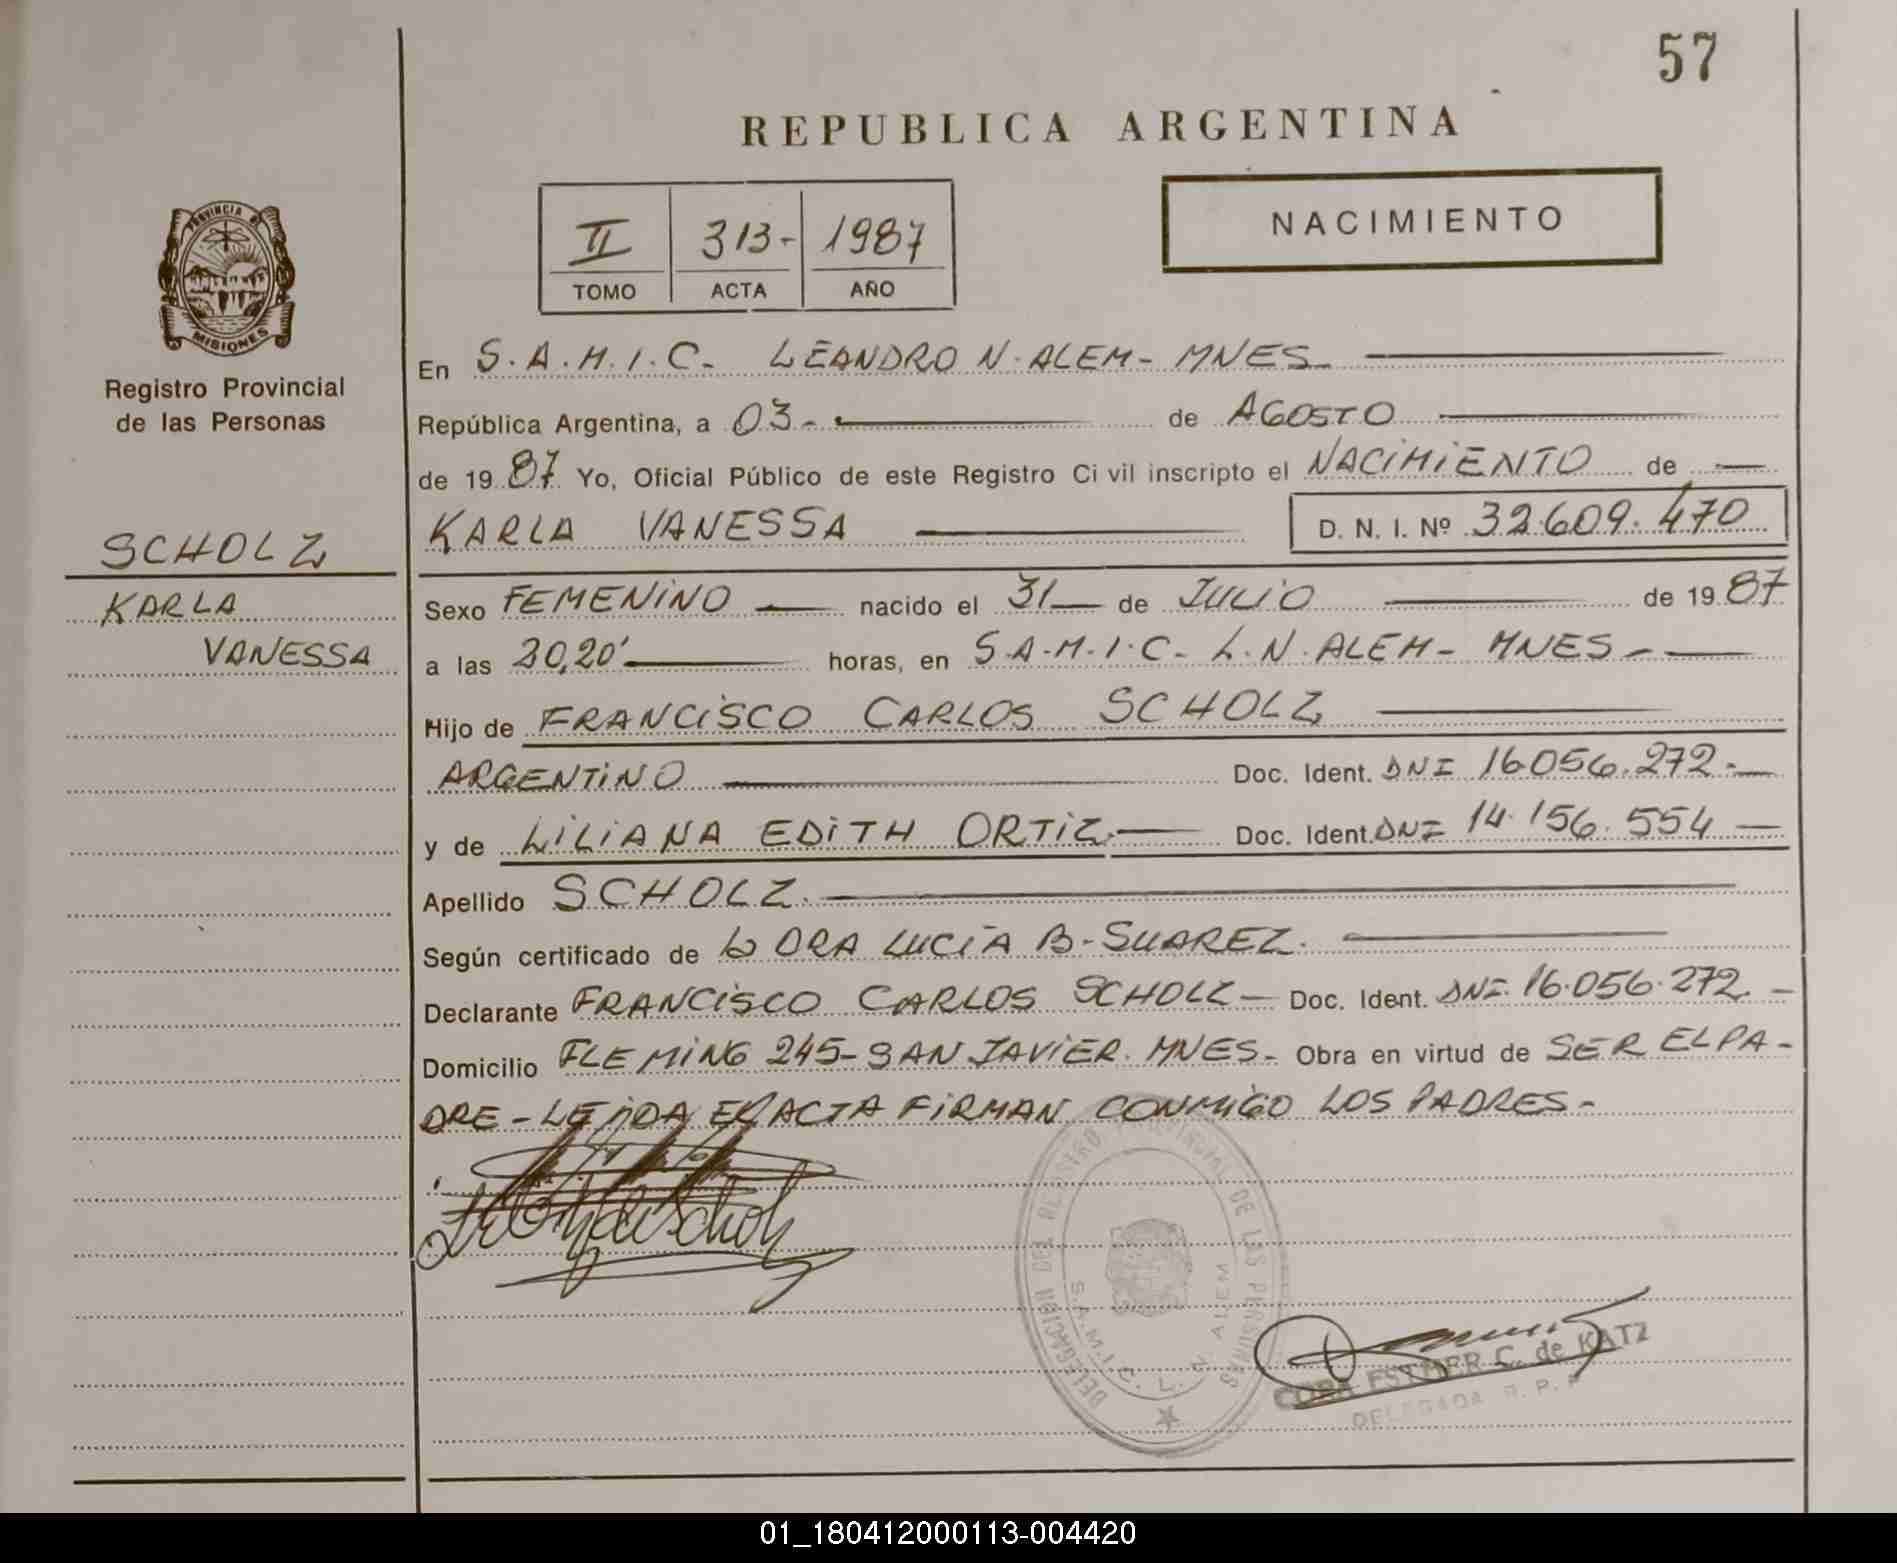 57
REPUBLICA ARGENTINA
II 313- 1987
TOMO ACTA AÑO
NACIMIENTO
PROVINCIA DE
MISIONES
Registro Provincial
de las Personas
SCHOLZ
KARLA
VANESSA
En S.A.M.I.C. LEANDRO N. ALEM- MNES
República Argentina, a 03- de AGOSTO
de 1987 Yo, Oficial Público de este Registro Civil inscripto el NACIMIENTO de
KARLA VANESSA D. N. I. Nº 32.609.470
Sexo FEMENINO nacido el 31 de JULIO de 1987
a las 20,20' horas, en S.A.M.I.C. L.N. ALEM- MNES-
Hijo de FRANCISCO CARLOS SCHOLZ
ARGENTINO Doc. Ident. DNI 16.056.272-
y de LILIANA EDITH ORTIZ Doc. Ident. DNI 14.156.554
Apellido SCHOLZ
Según certificado de LA DRA LUCIA B. SUAREZ.
Declarante FRANCISCO CARLOS SCHOLZ- Doc. Ident. DNI 16.056.272.-
Domicilio FLEMING 245- SAN JAVIER. MNES- Obra en virtud de SER EL PA-
DRE- LEIDA EL ACTA FIRMAN CONMIGO LOS PADRES-
DELEGACION DEL REGISTRO PROVINCIAL DE LAS PERSONAS
S.A.M.I.C. L. N. ALEM
ESTHER C. de KATZ
DELEGADA R. P.
01_180412000113-004420